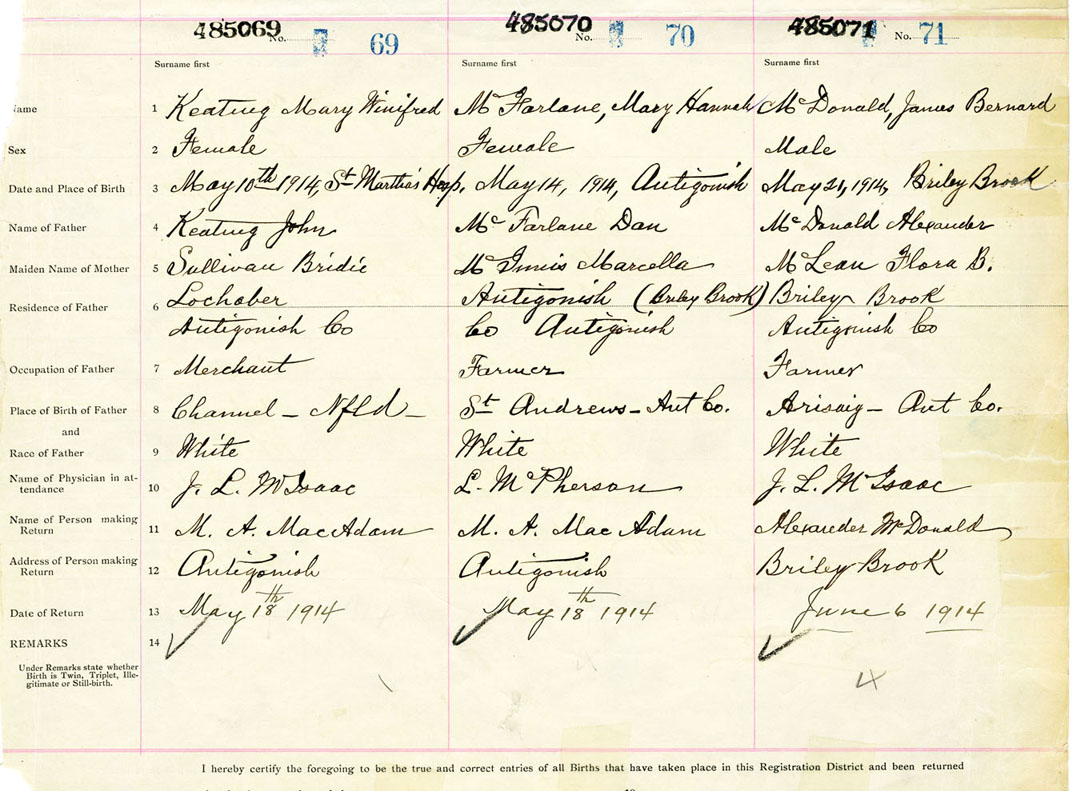 485069 No. 69 485070 No. 70 485071 No. 71
Surname first Surname first Surname first
Name 1 Keating Mary Winifred Mc Farlane, Mary Hannah Mc Donald, James Bernard
Sex 2 Female Female Male
Date and Place of Birth 3 May 10th 1914, St Martha's Hosp. May 14, 1914, Antigonish May 21, 1914, Briley Brook
Name of Father 4 Keating John Mc Farlane Dan Mc Donald Alexander
Maiden Name of Mother 5 Sullivan Bridie Mc Innis Marcella Mc Lean Flora B.
Residence of Father 6 Lochaber Antigonish (Briley Brook) Briley Brook
Antigonish Co Co Antigonish Antigonish Co
Occupation of Father 7 Merchant Farmer Farmer
Place of Birth of Father 8 Channel - Nfld - St Andrews - Ant Co. Arisaig - Ant Co.
and
Race of Father 9 White White White
Name of Physician in at-
tendance 10 J. L. McIsaac L. McPherson J. L. McIsaac
Name of Person making
Return 11 M. A. MacAdam M. A. MacAdam Alexander McDonald
Address of Person making
Return 12 Antigonish Antigonish Briley Brook
Date of Return 13 May 18th 1914 May 18th 1914 June 6 1914
REMARKS 14
Under Remarks state whether
Birth is Twin, Triplet, Ille-
gitimate or Still-birth.
I hereby certify the foregoing to be the true and correct entries of all Births that have taken place in this Registration District and been returned